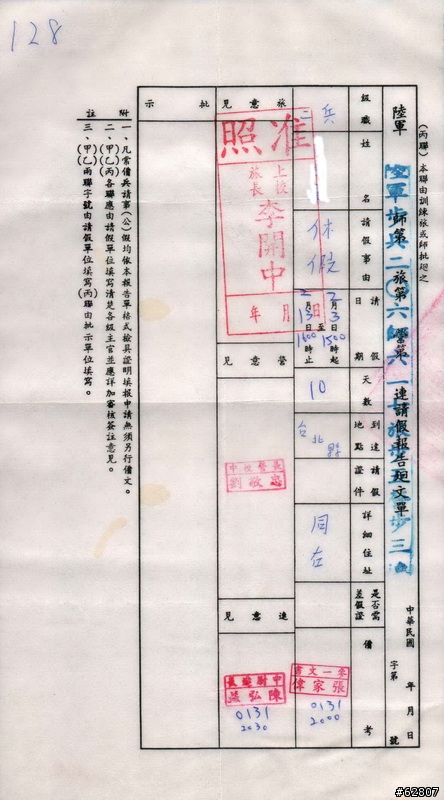 128
(丙聯)本聯由訓練旅或師批廻之
陸軍 師第 旅第 營第 連請假報告廻文單
陸軍步兵二〇六
中華民國 年 月 日
字第 號
級職 姓名 請假事由 請假日期 天數 到達請假地點證件 詳細住址 是否需差假證 備考
二兵
休假
2月3日1500時起
至
2月13日1600時止
10
台北縣
同右
李一文書
張家偉
0131
2000
旅意見
准照
上校
旅長
李開中
年 月 日
營意見
中校營長
劉敬忠
連意見
中尉連長
陳弘
0131
2030
批示
附註
一、凡常備兵請事(公)假均依本報告單格式檢具證明填報申請無須另行備文。
二、(甲)(乙)(丙)各聯應由請假單位填寫清楚各級主官並應詳加審核簽註意見。
三、(甲)(乙)兩聯字號由請假單位填寫(丙)聯由批示單位填寫。
#62807